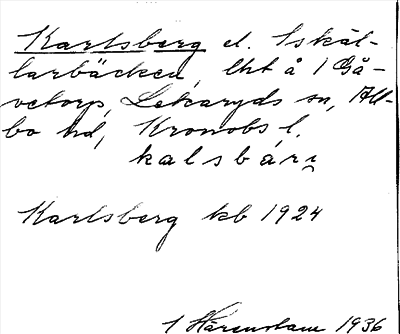 Karlsberg el. Iskäl-
larbäcken, lht å 1 Gå-
vetorp, Lekaryds sn, All-
bo hd, Kronobs l.
kalsbárj
Karlsberg kb 1924
1 Härenstam 1936